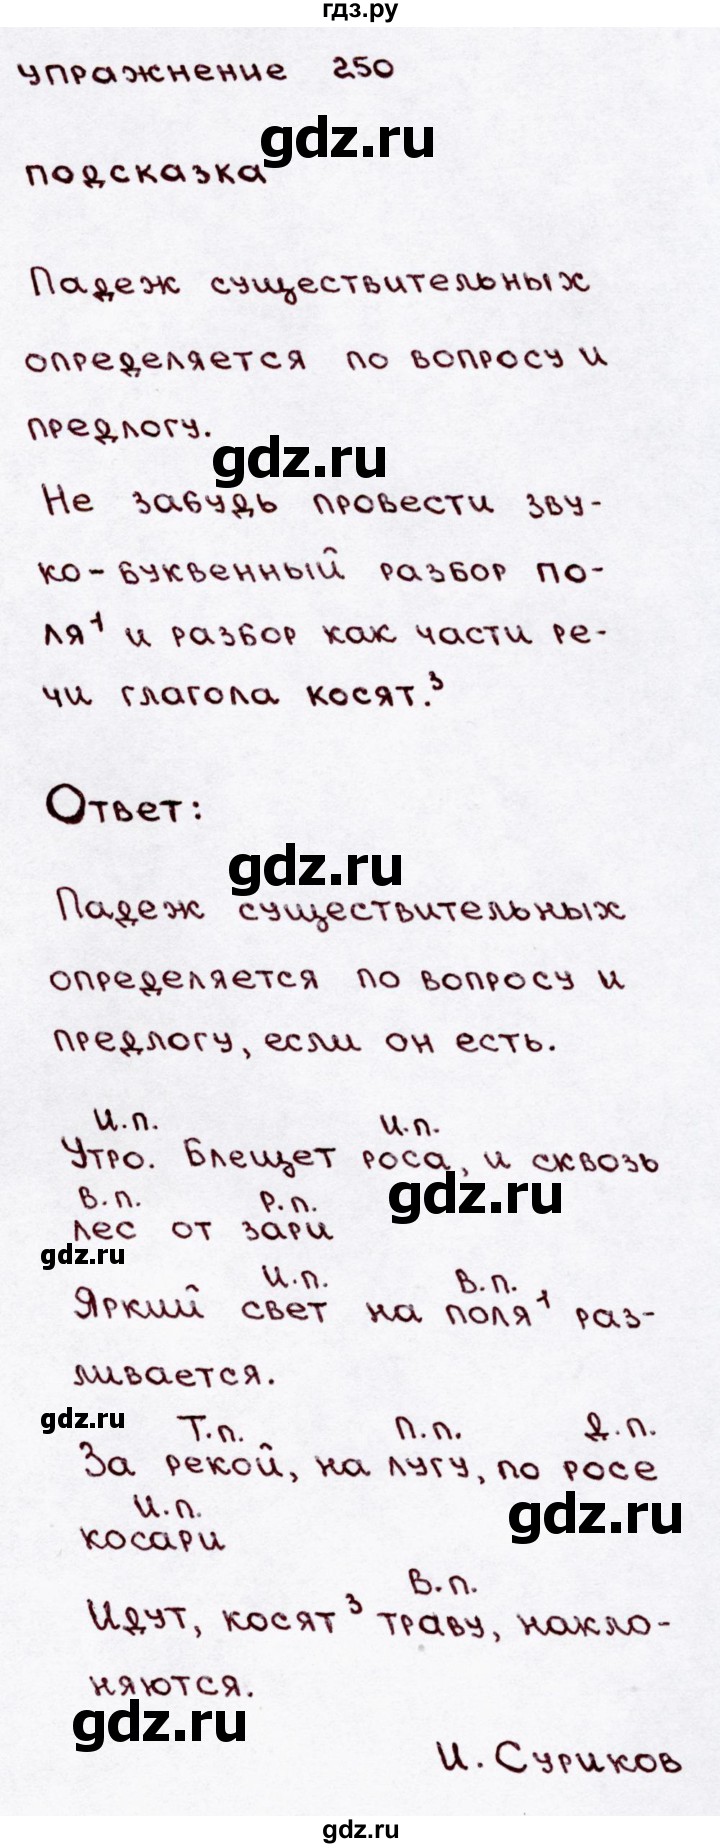 гдз.ру
упражнение 250
gdz.ru
подсказка
Падеж существительных
определяется по вопросу и
предлогу.
gdz.ru
Не забудь провести зву-
ко-буквенный разбор по-
ля¹ и разбор как части ре-
чи глагола косят.³
Ответ:
gdz.ru
Падеж существительных
определяется по вопросу и
предлогу, если он есть.
И.п. И.п.
Утро. Блещет роса, и сквозь
gdz.ru
В.п. Р.п.
лес от зари
gdz.ru
И.п. В.п.
Яркий свет на поля¹ раз-
ливается.
gdz.ru
Т.п. П.п. Д.п.
За рекой, на лугу, по росе
gdz.ru
И.п.
косари
В.п.
Идут, косят³ траву, накло-
няются.
gdz.ru
И. Суриков
gdz.ru